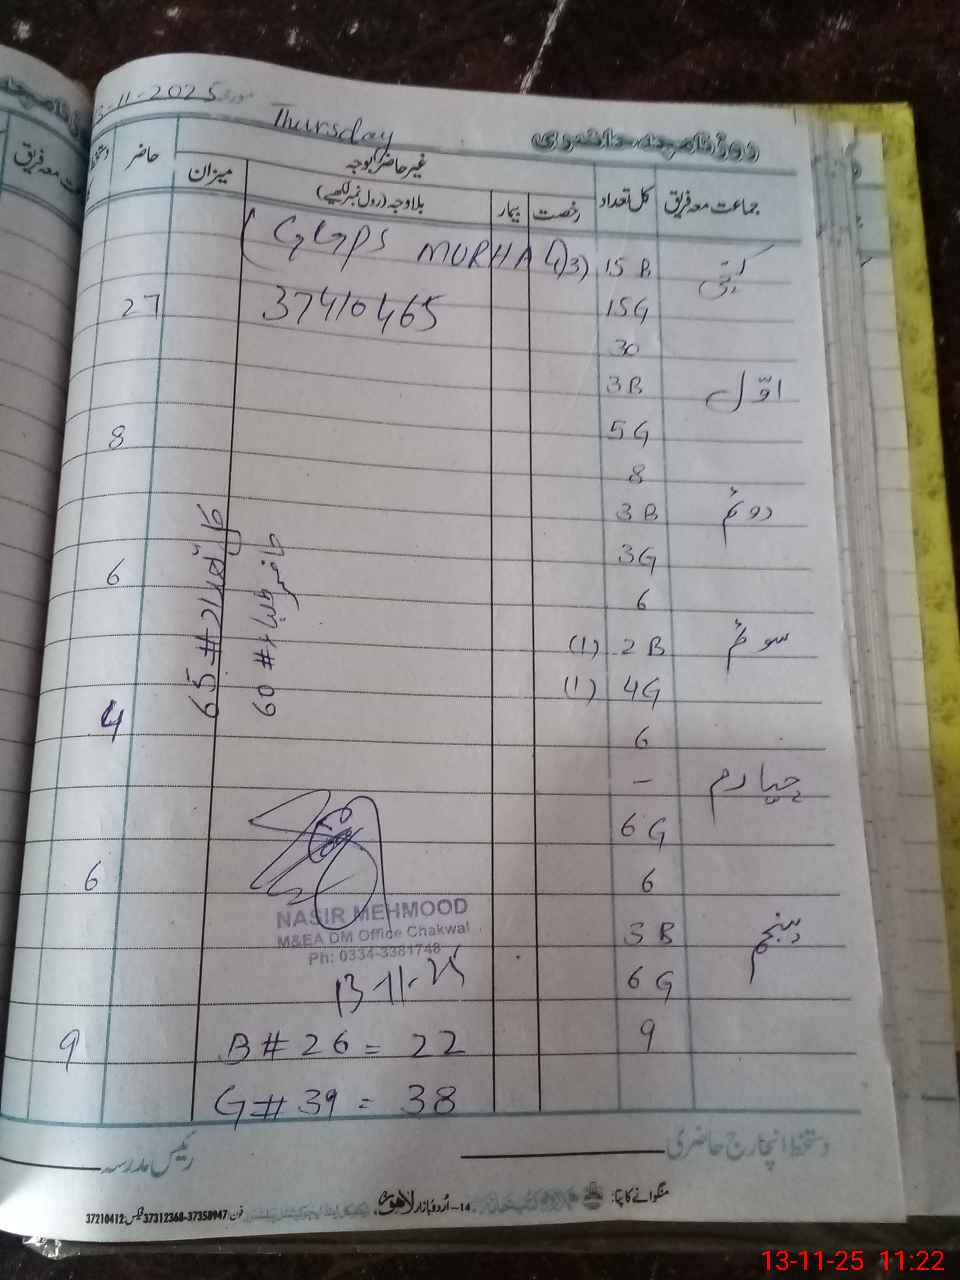 روزنامچہ حاضری
Thursday
مورخہ 13-11-2025
جماعت معہ فریق
کل تعداد
غیر حاضر کی وجہ
رخصت
بیمار
بلاوجہ (رول نمبر لکھیے)
میزان
حاضر
کچی 15 B (1)(3)
(GGPS MORHA
15 G
37410465
27
30
اوّل 3 B
5 G
8
8
دوئم 3 B
3 G
6
6
سوئم 2 B (1)
4 G (1)
6
4
چہارم –
6 G
6
6
پنجم 3 B
6 G
9
9
65 #
60 #
حاضر
NASIR MEHMOOD
M&EA DM Office Chakwal
Ph: 0334-3381748
13-11-25
B # 26 = 22
G # 39 = 38
دستخط انچارج حاضری
رئیس مدرسہ
منگوانے کا پتا:
14-اُردو بازار لاہور
فون: 37312368-37358947 فیکس: 37210412
13-11-25 11:22